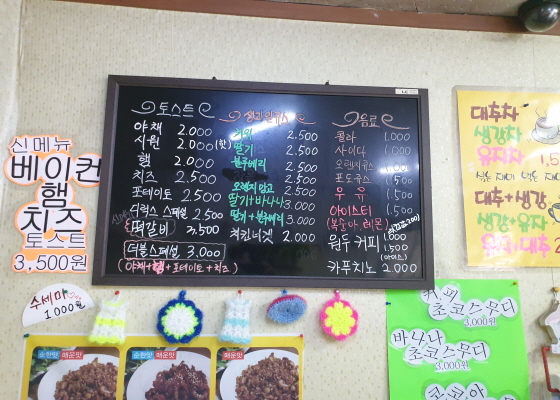 신메뉴
베이컨
햄
치즈
토스트
3,500원
수세미
1000원
토스트
야채 2.000
시원 2.000
햄 2.000
치즈 2.500
포테이토 2.500
디럭스 스페셜 2.500
떡갈비 3,500
더블스페셜 3.000
(야채+햄+포테이토+치즈)
생과일쥬스
키위 2.500
딸기 2.500
블루베리 2.500
오렌지망고 2.500
딸기+바나나 3.000
딸기+블루베리 3.000
치킨너겟 2.000
음료
콜라 1.000
사이다 1.000
오렌지쥬스 1.000
포도쥬스 1.500
우유 1.500
아이스티 1.500
(복숭아,레몬)
원두커피 1.000
1.500
(아이스)
카푸치노 2.000
대추차
생강차
유자차
대추+생강
생강+유자
유자+대추
커피
초코스무디
3.000원
바나나
초코스무디
3.000원
코코아
순한맛 매운맛
순한맛 매운맛
순한맛 매운맛